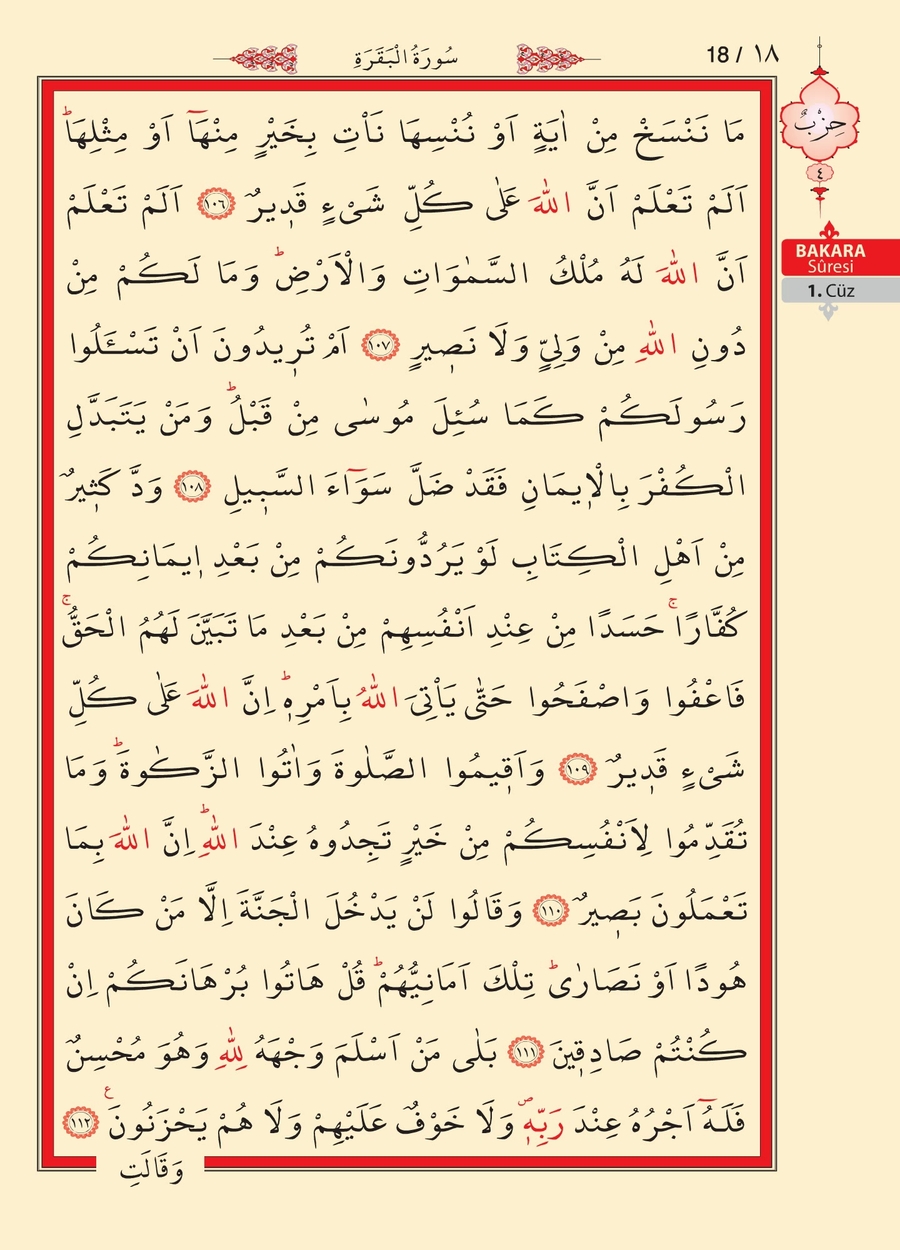 سُورَةُ الْبَقَرَةِ
18 / ١٨
حِزْبٌ
٤
BAKARA
Sûresi
1. Cüz
مَا نَنْسَخْ مِنْ اٰيَةٍ اَوْ نُنْسِهَا نَأْتِ بِخَيْرٍ مِنْهَٓا اَوْ مِثْلِهَاۜ
اَلَمْ تَعْلَمْ اَنَّ اللّٰهَ عَلٰى كُلِّ شَيْءٍ قَد۪يرٌ ﴿١٠٦﴾ اَلَمْ تَعْلَمْ
اَنَّ اللّٰهَ لَهُ مُلْكُ السَّمٰوَاتِ وَالْاَرْضِۜ وَمَا لَكُمْ مِنْ
دُونِ اللّٰهِ مِنْ وَلِيٍّ وَلَا نَص۪يرٍ ﴿١٠٧﴾ اَمْ تُر۪يدُونَ اَنْ تَسْـَٔلُوا
رَسُولَكُمْ كَمَا سُئِلَ مُوسٰى مِنْ قَبْلُۜ وَمَنْ يَتَبَدَّلِ
الْكُفْرَ بِالْا۪يمَانِ فَقَدْ ضَلَّ سَوَٓاءَ السَّب۪يلِ ﴿١٠٨﴾ وَدَّ كَث۪يرٌ
مِنْ اَهْلِ الْكِتَابِ لَوْ يَرُدُّونَكُمْ مِنْ بَعْدِ ا۪يمَانِكُمْ
كُفَّارًاۚ حَسَدًا مِنْ عِنْدِ اَنْفُسِهِمْ مِنْ بَعْدِ مَا تَبَيَّنَ لَهُمُ الْحَقُّۚ
فَاعْفُوا وَاصْفَحُوا حَتّٰى يَأْتِيَ اللّٰهُ بِاَمْرِه۪ۜ اِنَّ اللّٰهَ عَلٰى كُلِّ
شَيْءٍ قَد۪يرٌ ﴿١٠٩﴾ وَاَق۪يمُوا الصَّلٰوةَ وَاٰتُوا الزَّكٰوةَۜ وَمَا
تُقَدِّمُوا لِاَنْفُسِكُمْ مِنْ خَيْرٍ تَجِدُوهُ عِنْدَ اللّٰهِۜ اِنَّ اللّٰهَ بِمَا
تَعْمَلُونَ بَص۪يرٌ ﴿١١٠﴾ وَقَالُوا لَنْ يَدْخُلَ الْجَنَّةَ اِلَّا مَنْ كَانَ
هُودًا اَوْ نَصَارٰىۜ تِلْكَ اَمَانِيُّهُمْۜ قُلْ هَاتُوا بُرْهَانَكُمْ اِنْ
كُنْتُمْ صَادِق۪ينَ ﴿١١١﴾ بَلٰى مَنْ اَسْلَمَ وَجْهَهُ لِلّٰهِ وَهُوَ مُحْسِنٌ
فَلَهُٓ اَجْرُهُ عِنْدَ رَبِّه۪ۖ وَلَا خَوْفٌ عَلَيْهِمْ وَلَا هُمْ يَحْزَنُونَ۟ ﴿١١٢﴾
وَقَالَتِ